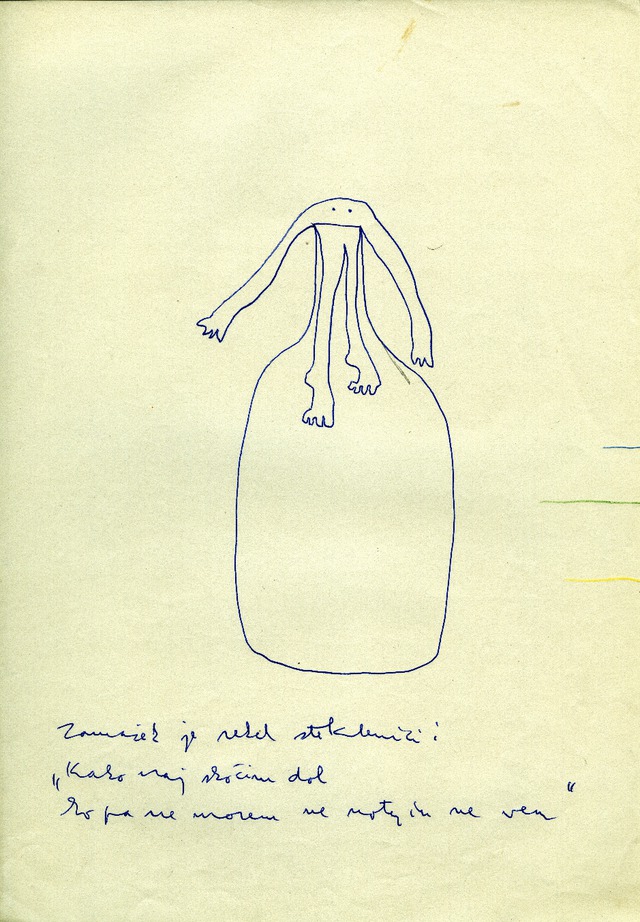 Zamašek je rekel steklenici:
„Kako naj skočim dol
ko pa ne morem ne notri in ne ven“